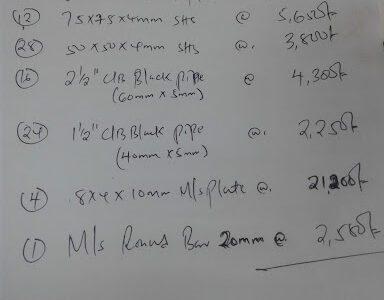 (12) 75x75x4mm SHS @ 5,650/=
(28) 50x50x4mm SHS @. 3,800/=
(16) 2½" C/B Black pipe @ 4,300/=
(60mm x 5mm)
(24) 1½" C/B Black pipe @. 2,250/=
(40mm x 5mm)
(4) 8x4x10mm M/s plate @. 21,200/=
(1) M/s Round Bar 20mm @ 2,580/=